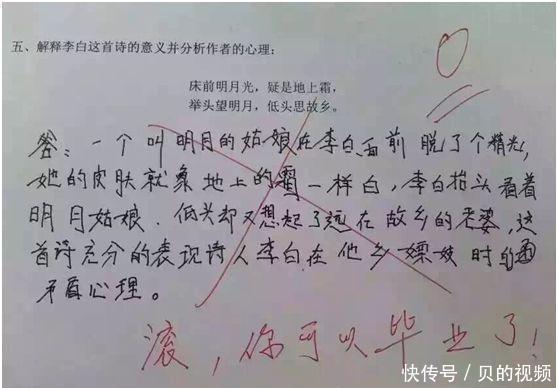 五、解释李白这首诗的意义并分析作者的心理:
床前明月光,疑是地上霜,
举头望明月,低头思故乡。
0
答:一个叫明月的姑娘在李白面前脱了个精光,
她的皮肤就象地上的霜一样白,李白抬头看着
明月姑娘.低头却又想起了远在故乡的老婆,这
首诗充分的表现诗人李白在他乡嫖妓时的
矛盾心理。
滚,你可以毕业了!
快传号/贝的视频